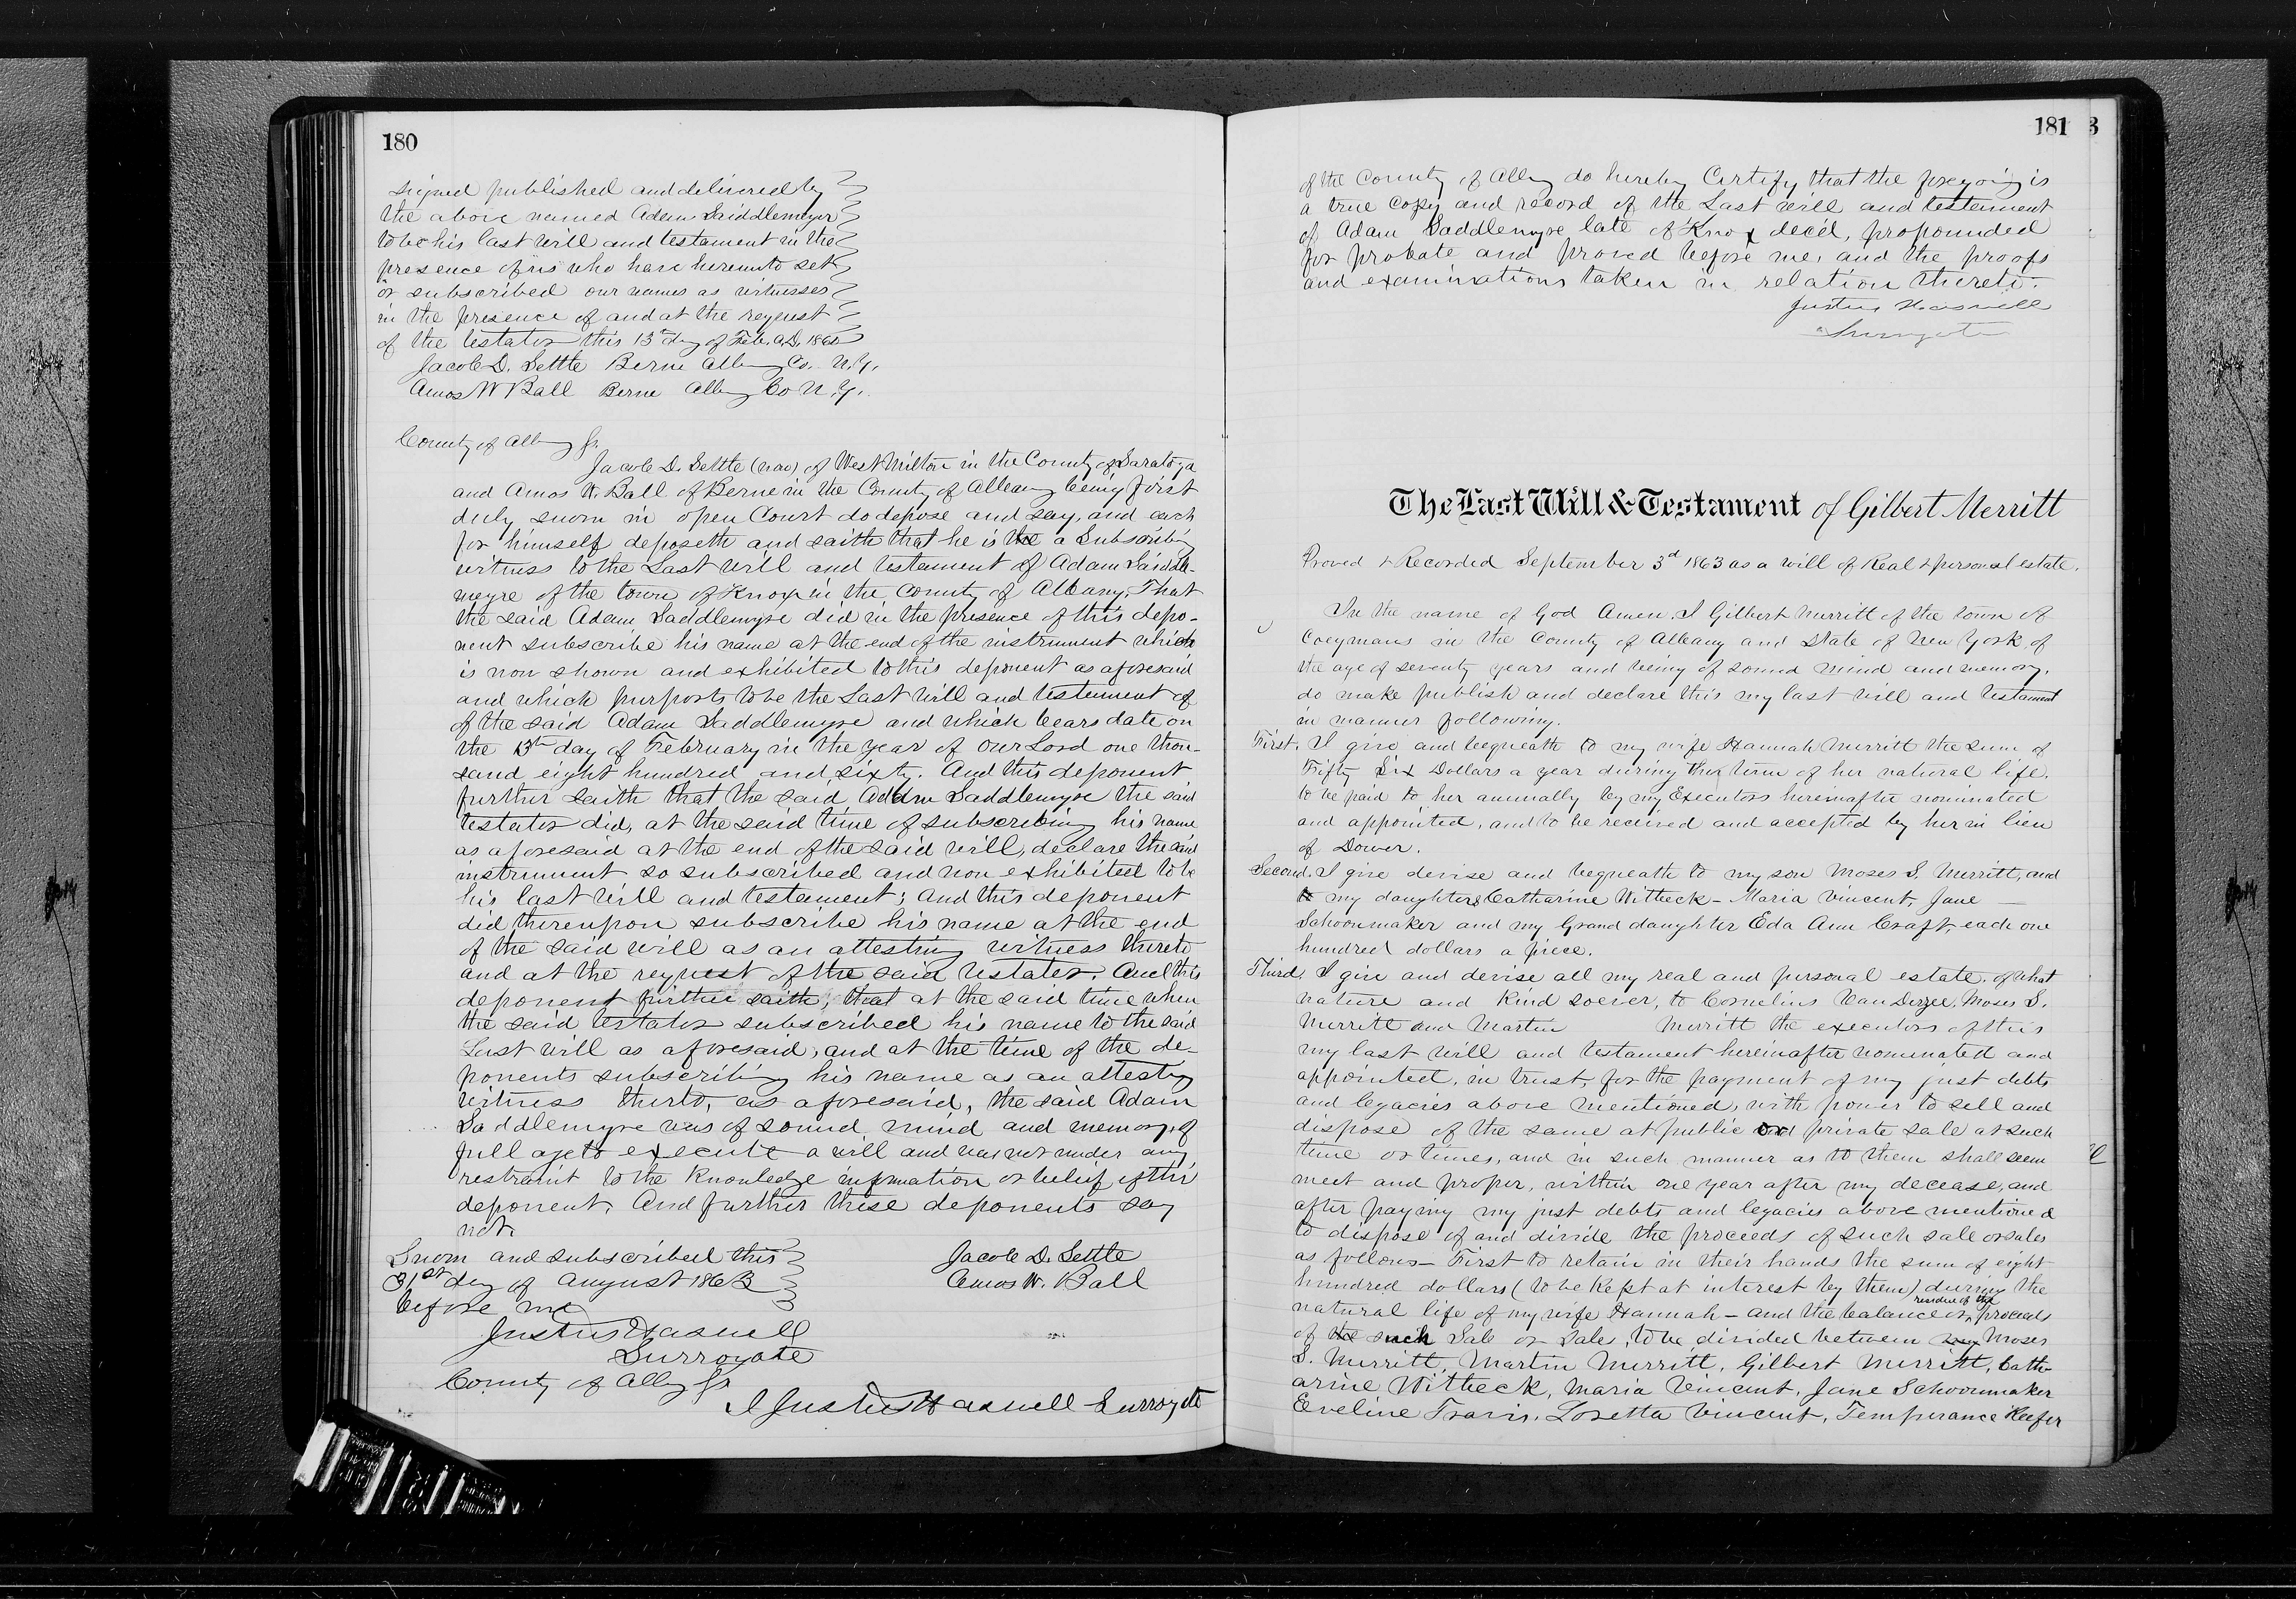 180
signed published and delivered by
the above named Adam Saiddlemeyer
to be his last will and testament in the
presence of us who have hereunto set
or subscribed our names as witnesses
in the presence of and at the request
of the testator this 13th day of Feb. A.D. 1860
Jacob D. Settle Berne Albany Co. N.Y.
Amos W Ball Berne Albany Co N.Y.
County of Albany Ss.
Jacob D. Settle (now) of West Milton in the County of Saratoga
and Amos W. Ball of Berne in the County of Albany being first
duly sworn in open Court do depose and say, and each
for himself deposeth and saith that he is a Subscribing
witness to the Last Will and testament of Adam Saiddle-
meyre of the town of Knox in the County of Albany, That
the said Adam Saddlemyre did in the presence of this depo-
nent subscribe his name at the end of the instrument which
is now shown and exhibited to this deponent as aforesaid
and which purports to be the Last Will and testement of
of the said Adam Saddlemyre and which bears date on
the 13th day of February in the year of Our Lord one thou-
sand eight hundred and sixty. And this deponent
further saith that the said Adam Saddlemyre the said
testator did, at the said time of subscribing his name
as aforesaid at the end of the said will, declare the said
instrument so subscribed and now exhibited to be
his last will and testement; and this deponent
did thereupon subscribe his name at the end
of the said will as an attesting witness thereto
and at the request of the said testator. And this
deponent further saith, that at the said time when
the said testator subscribed his name to the said
Last will as aforesaid, and at the time of the de-
ponents subscribing his name as an attesting
witness therto, as aforesaid, the said Adam
Saddlemyre was of sound mind and memory, of
full age to execute a will and was not under any
restraint to the knowledge information or belief of this
deponent, And further these deponents say
not.
Sworn and subscribed this
31st day of August 1863
before me
Jacob D. Settle
Amos W. Ball
Justus Haswell
Surrogate
County of Albany Ss
I Justus Haswell Surrogate
181 3
of the County of Albany do hereby Certify that the foregoing is
a true Copy and record of the Last will and testement
of Adam Saddlemyre late of Knox decd, propounded
for probate and proved before me, and the proofs
and examinations taken in relation thereto.
Justus Haswell
Surrogate
The Last Will & Testament of Gilbert Merritt
Proved & Recorded September 3d 1863 as a will of Real & personal estate.
In the name of God Amen. I Gilbert Merritt of the town of
Coeymans in the County of Albany and State of New York, of
the age of seventy years and being of sound mind and memory,
do make publish and declare this my last will and testament
in manner following.
First. I give and bequeath to my wife Hannah Merritt the sum of
Fifty Six Dollars a year during the term of her natural life.
to be paid to her annually by my Executors hereinafter nominated
and appointed, and to be received and accepted by her in lieu
of Dower.
Second. I give devise and bequeath to my son Moses S. Merritt, and
to my daughters Catharine Witbeck - Maria Vincent, Jane -
Schoonmaker and my Grand daughter Eda Ann Craft, each one
hundred dollars a piece.
Third, I give and devise all my real and personal estate, of what
nature and kind soever, to Cornelius Van Derzee, Moses S.
Merritt and Martin Merritt the executors of this
my last will and testament hereinafter nominated and
appointed, in trust, for the payment of my just debts
and legacies above mentioned, with power to sell and
dispose of the same at public or private sale at such
time or times, and in such manner as to them shall seem
meet and proper, within one year after my decease, and
after paying my just debts and legacies above mentioned
to dispose of and divide the proceeds of such sale or sales
as follows - First to retain in their hands the sum of eight
hundred dollars (to be kept at interest by them) during the
natural life of my wife Hannah - and the balance or residue of the proceeds
of such Sale or Sales, to be divided between Moses
S. Merritt, Martin Merritt, Gilbert Merritt, Cath-
arine Witbeck, Maria Vincent, Jane Schoonmaker
Eveline Travis, Loretta Vincent, Temperance Keefer